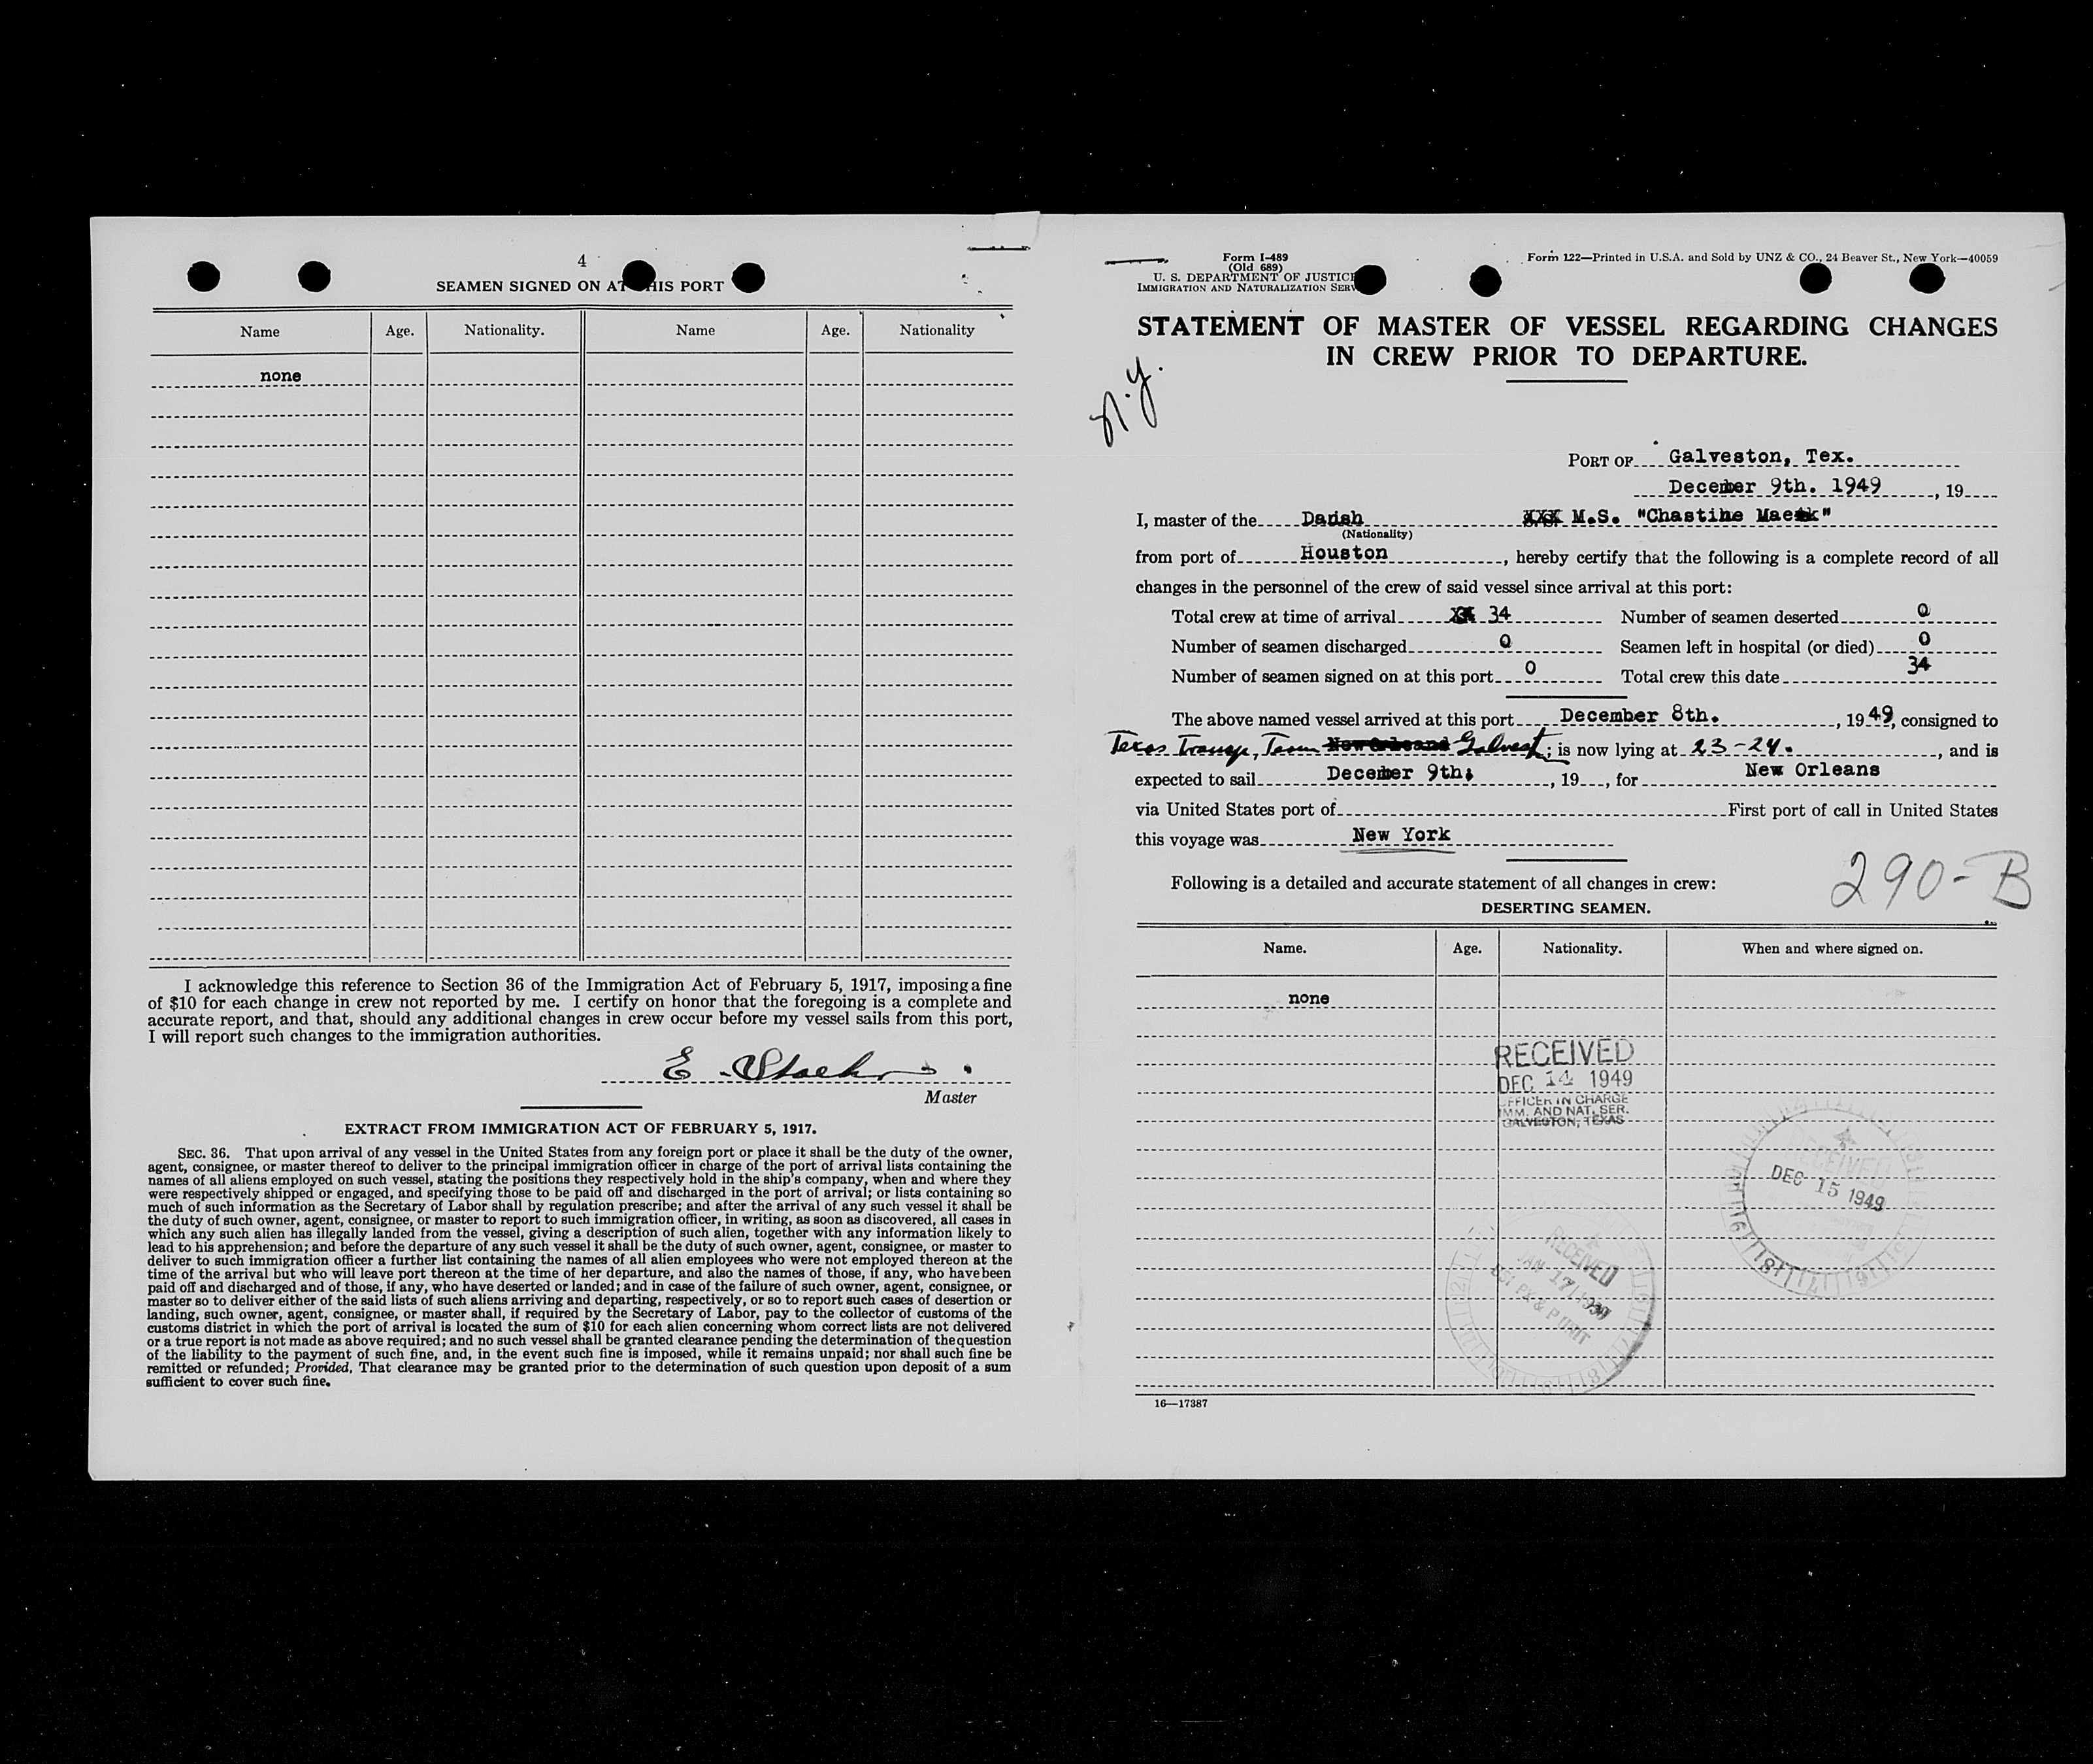 4
SEAMEN SIGNED ON AT THIS PORT
Name Age. Nationality. Name Age. Nationality
none
I acknowledge this reference to Section 36 of the Immigration Act of February 5, 1917, imposing a fine
of $10 for each change in crew not reported by me. I certify on honor that the foregoing is a complete and
accurate report, and that, should any additional changes in crew occur before my vessel sails from this port,
I will report such changes to the immigration authorities.
E
Master
EXTRACT FROM IMMIGRATION ACT OF FEBRUARY 5, 1917.
SEC. 36. That upon arrival of any vessel in the United States from any foreign port or place it shall be the duty of the owner,
agent, consignee, or master thereof to deliver to the principal immigration officer in charge of the port of arrival lists containing the
names of all aliens employed on such vessel, stating the positions they respectively hold in the ship's company, when and where they
were respectively shipped or engaged, and specifying those to be paid off and discharged in the port of arrival; or lists containing so
much of such information as the Secretary of Labor shall by regulation prescribe; and after the arrival of any such vessel it shall be
the duty of such owner, agent, consignee, or master to report to such immigration officer, in writing, as soon as discovered, all cases in
which any such alien has illegally landed from the vessel, giving a description of such alien, together with any information likely to
lead to his apprehension; and before the departure of any such vessel it shall be the duty of such owner, agent, consignee, or master to
deliver to such immigration officer a further list containing the names of all alien employees who were not employed thereon at the
time of the arrival but who will leave port thereon at the time of her departure, and also the names of those, if any, who have been
paid off and discharged and of those, if any, who have deserted or landed; and in case of the failure of such owner, agent, consignee, or
master so to deliver either of the said lists of such aliens arriving and departing, respectively, or so to report such cases of desertion or
landing, such owner, agent, consignee, or master shall, if required by the Secretary of Labor, pay to the collector of customs of the
customs district in which the port of arrival is located the sum of $10 for each alien concerning whom correct lists are not delivered
or a true report is not made as above required; and no such vessel shall be granted clearance pending the determination of the question
of the liability to the payment of such fine, and, in the event such fine is imposed, while it remains unpaid; nor shall such fine be
remitted or refunded; Provided, That clearance may be granted prior to the determination of such question upon deposit of a sum
sufficient to cover such fine.
Form I-489
(Old 689)
U. S. DEPARTMENT OF JUSTICE
IMMIGRATION AND NATURALIZATION SERV
Form 122—Printed in U.S.A. and Sold by UNZ & CO., 24 Beaver St., New York—40059
STATEMENT OF MASTER OF VESSEL REGARDING CHANGES
IN CREW PRIOR TO DEPARTURE.
N.Y.
PORT OF Galveston, Tex.
December 9th. 1949, 19
I, master of the Danish XXX M.S. "Chastine Maersk"
(Nationality)
from port of Houston, hereby certify that the following is a complete record of all
changes in the personnel of the crew of said vessel since arrival at this port:
Total crew at time of arrival 34 Number of seamen deserted 0
Number of seamen discharged 0 Seamen left in hospital (or died) 0
Number of seamen signed on at this port 0 Total crew this date 34
The above named vessel arrived at this port December 8th., 1949, consigned to
Texas Transp, Term New Orleans Galvest; is now lying at 23-24., and is
expected to sail December 9th., 19, for New Orleans
via United States port of First port of call in United States
this voyage was New York
290-B
Following is a detailed and accurate statement of all changes in crew:
DESERTING SEAMEN.
Name. Age. Nationality. When and where signed on.
none
RECEIVED
DEC 14 1949
OFFICER IN CHARGE
IMM. AND NAT. SER.
GALVESTON, TEXAS
RECEIVED
DEC 15 1949
RECEIVED
JAN 17
P UNIT
16—17387